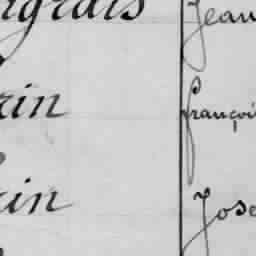 ngrais Jean
rin françoi
rin Jose